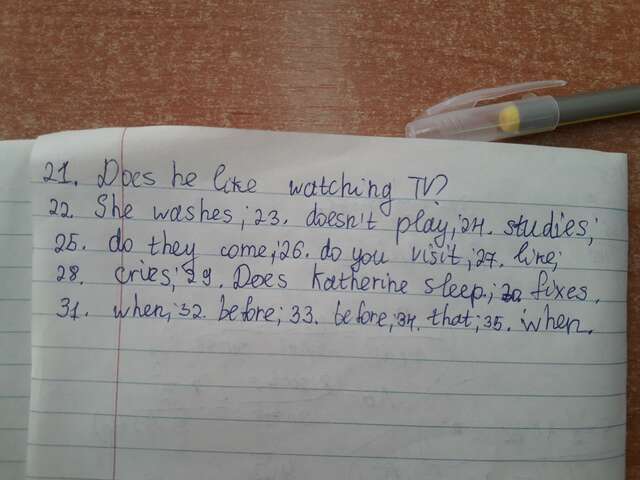 21. Does he like watching TV?
22. She washes; 23. doesn't play; 24. studies;
25. do they come; 26. do you visit; 27. like;
28. cries; 29. Does Katherine sleep; 30 fixes.
31. when; 32. before; 33. before; 34. that; 35. when.